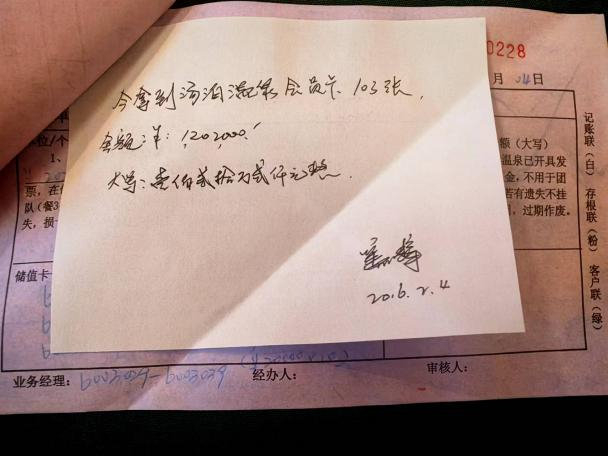 今拿到汤泊温泉会员卡 103张,
金额洋: 1,202,000.!
大写: 壹佰贰拾万贰仟元整.
2016.2.4
0228
月 04日
额（大写）
温泉已开具发
票，在
金，不用于团
队（餐3
若有遗失不挂
失，损
，过期作废。
储值卡
业务经理: 6003029-6003039 经办人: 审核人:
记账联（白） 存根联（粉） 客户联（绿）